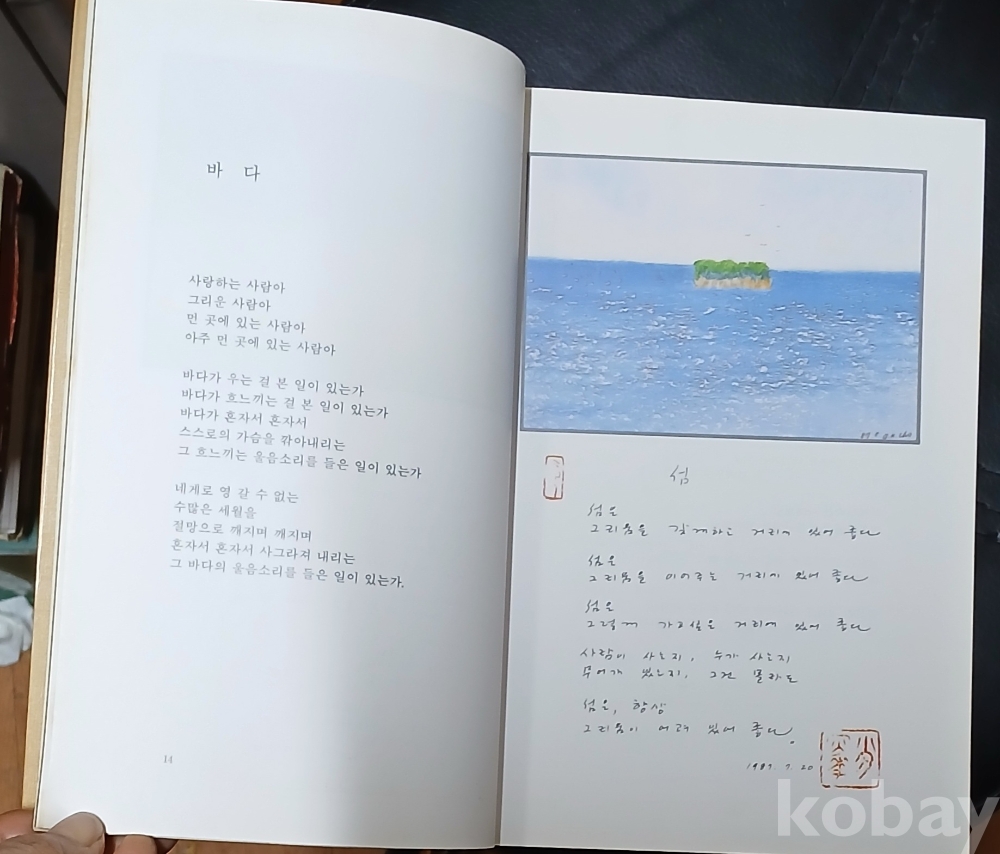 바 다
사랑하는 사람아
그리운 사람아
먼 곳에 있는 사람아
아주 먼 곳에 있는 사람아
바다가 우는 걸 본 일이 있는가
바다가 흐느끼는 걸 본 일이 있는가
바다가 혼자서 혼자서
스스로의 가슴을 깎아내리는
그 흐느끼는 울음소리를 들은 일이 있는가
네게로 영 갈 수 없는
수많은 세월을
절망으로 깨지며 깨지며
혼자서 혼자서 사그라져 내리는
그 바다의 울음소리를 들은 일이 있는가.
14
섬
섬은
그리움을 갖게하는 거리에 있어 좋다
섬은
그리움을 이어주는 거리에 있어 좋다
섬은
그렇게 가고싶은 거리에 있어 좋다
사람이 사는지, 누가 사는지
무어가 있는지, 그건 몰라도
섬은, 항상
그리움이 어려 있어 좋다.
1987. 7. 20
kobay